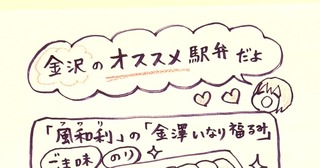 金沢のオススメ駅弁だよ
フワリ
「風和利」の「金澤いなり福る弁」
ごま味 のり